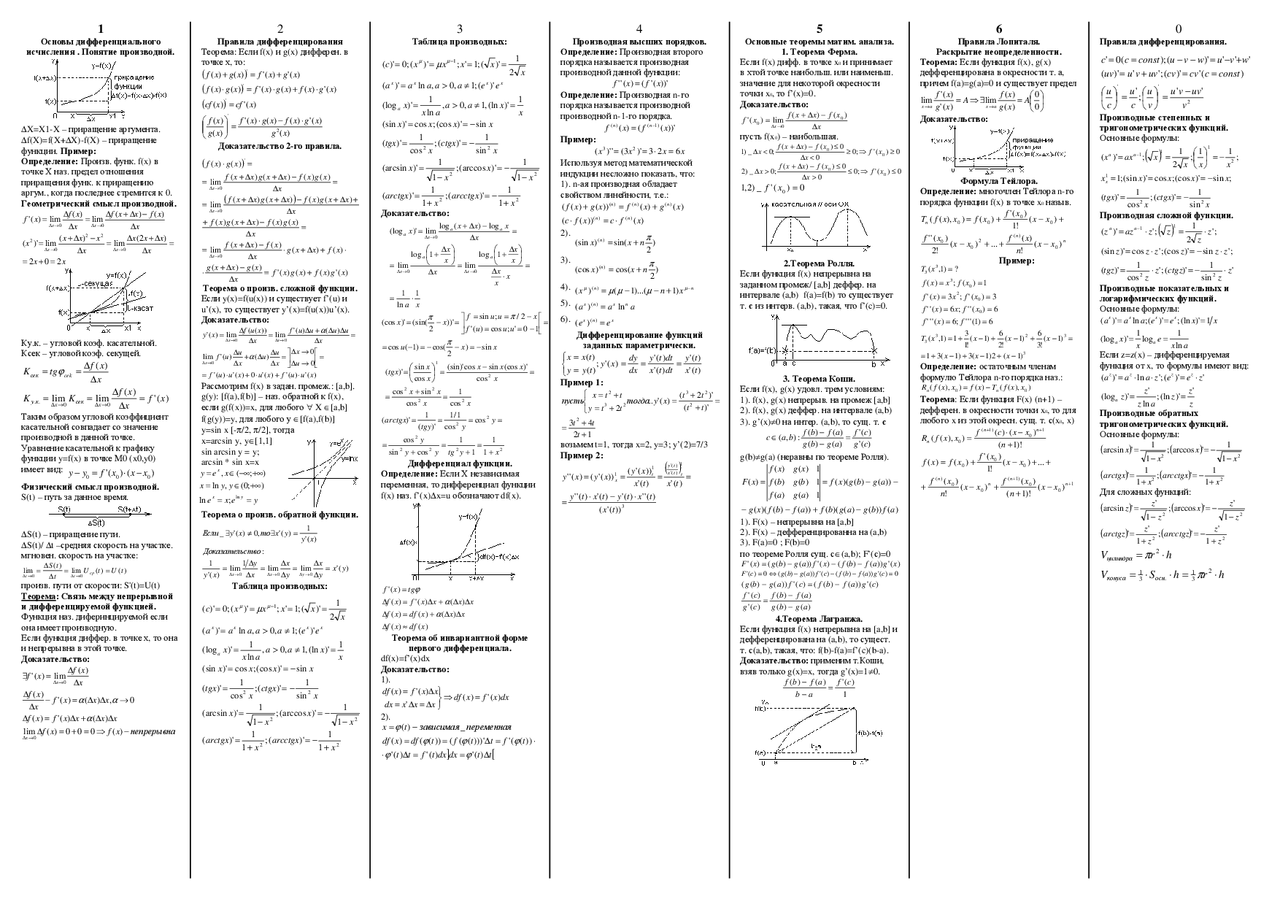 1
Основы дифференциального
исчисления . Понятие производной.
y=f(x)
f(x+Δx)
приращение
функции
Δf(x)=f(x+Δx)-f(x)
f(x)
ΔX=X1-X – приращение аргумента.
Δf(X)=f(X+ΔX)-f(X) – приращение
функции. Пример:
Определение: Произв. функ. f(x) в
точке X наз. предел отношения
приращения функ. к приращению
аргум., когда последнее стремится к 0.
Геометрический смысл производной.
f'(x)=lim Δf(x)/Δx=lim Δf(x+Δx)-f(x)/Δx
(x²)'=lim (x+Δx)²-x²/Δx=lim Δx(2x+Δx)/Δx=
=2x+0=2x
y=f(x)
f(x+Δx)
секущая
f(x)
Ку.к. – угловой коэф. касательной.
Ксек – угловой коэф. секущей.
K сек = tgφ сек = Δf(x)/Δx
K у.к. = lim K сек = lim Δf(x)/Δx = f'(x)
Таким образом угловой коэффициент
касательной совпадает со значение
производной в данной точке.
Уравнение касательной к графику
функции y=f(x) в точке M0 (x0,y0)
имеет вид: y-y₀=f'(x₀)·(x-x₀)
Физический смысл производной.
S(t) – путь за данное время.
S(t) S(t+Δt)
ΔS(t)
ΔS(t) – приращение пути.
ΔS(t)/ Δt –средняя скорость на участке.
мгновен. скорость на участке:
произв. пути от скорости: S'(t)=U(t)
Теорема: Связь между непрерывной
и дифференцируемой функцией.
Функция наз. дифиринцируемой если
она имеет производную.
Если функция диффер. в точке x, то она
и непрерывна в этой точке.
Доказательство:
∃f'(x)=lim Δf(x)/Δx
Δf(x)/Δx - f'(x)=α(Δx)Δx,α→0
Δf(x)=f'(x)Δx+α(Δx)Δx
limΔf(x)=0+0=0⇒f(x)-непрерывна
2
Правила дифференцирования
Теорема: Если f(x) и g(x) дифферен. в
точке x, то:
(f(x)+g(x))=f'(x)+g'(x)
(f(x)·g(x))=f'(x)·g(x)+f(x)·g'(x)
(cf(x))=cf'(x)
(f(x)/g(x))=f'(x)·g(x)-f(x)·g'(x)/g²(x)
Доказательство 2-го правила.
(f(x)·g(x))=
=lim f(x+Δx)g(x+Δx)-f(x)g(x)/Δx=
=lim (f(x+Δx)g(x+Δx)-f(x)g(x+Δx)+/Δx
+f(x)g(x+Δx)-f(x)g(x)/Δx=
=lim f(x+Δx)-f(x)/Δx·g(x+Δx)+f(x)·
·g(x+Δx)-g(x)/Δx=f'(x)g(x)+f(x)g'(x)
Теорема о произв. сложной функции.
Если y(x)=f(u(x)) и существует f'(u) и
u'(x), то существует y'(x)=f(u(x))u'(x).
Доказательство:
=f'(u)·u'(x)+0·u'(x)+f'(u)·u'(x)
Рассмотрим f(x) в задан. промеж.: [a,b].
g(y): [f(a),f(b)] – наз. обратной к f(x),
если g(f(x))=x, для любого ∀ X∈[a,b]
f(g(y))=y, для любого y∈[f(a),f(b)]
y=sin x [-π/2, π/2], тогда
x=arcsin y, y∈[1,1]
sin arcsin y = y;
arcsin * sin x=x
y=eˣ, x∈(-∞;+∞)
x=ln y, y∈(0;+∞)
ln eˣ=x;e^(ln y)=y
Теорема о произв. обратной функции.
Если_∃y'(x)≠0,то∃x'(y)=1/y'(x)
Доказательство:
1/y'(x)=lim 1/Δy/Δx=lim Δx/Δy=lim Δx/Δx=x'(y)
Таблица производных:
(c)'=0;(x^μ)'=μx^(μ-1);x'=1;(√x)'=1/2√x
(aˣ)'=aˣ ln a,a>0,a≠1;(eˣ)'eˣ
(logₐ x)'=1/x ln a,a>0,a≠1,(ln x)'=1/x
(sin x)'=cos x;(cos x)'=-sin x
(tgx)'=1/cos² x;(ctgx)'=-1/sin² x
(arcsin x)'=1/√1-x²;(arccos x)'=-1/√1-x²
(arctgx)'=1/1+x²;(arcctgx)'=-1/1+x²
3
Таблица производных:
(c)'=0;(x^μ)'=μx^(μ-1);x'=1;(√x)'=1/2√x
(aˣ)'=aˣ ln a,a>0,a≠1;(eˣ)'eˣ
(logₐ x)'=1/x ln a,a>0,a≠1,(ln x)'=1/x
(sin x)'=cos x;(cos x)'=-sin x
(tgx)'=1/cos² x;(ctgx)'=-1/sin² x
(arcsin x)'=1/√1-x²;(arccos x)'=-1/√1-x²
(arctgx)'=1/1+x²;(arcctgx)'=-1/1+x²
Доказательство:
(logₐ x)'=lim logₐ(x+Δx)-logₐ x/Δx=
=1/ln a·1/x
=cos u(-1)=-cos(π/2-x)=-sin x
=cos² x+sin² x/cos² x=1/cos² x
(arctgx)'=1/(tgy)'=1/1/cos² y=cos² y=
=cos² y/sin² y+cos² y=1/tg² y+1=1/1+x²
Дифференциал функции.
Определение: Если X независимая
переменная, то дифференциал функции
f(x) наз. f'(x)Δx=u обозначают df(x).
y=f(x)
Δf(x)
f'(x)=tgφ
Δf(x)=f'(x)Δx+α(Δx)Δx
Δf(x)=df(x)+α(Δx)Δx
Δf(x)≈df(x)
Теорема об инвариантной форме
первого дифференциала.
df(x)=f'(x)dx
Доказательство:
1).
df(x)=f'(x)Δx
dx=x'Δx=Δx
⇒df(x)=f'(x)dx
2).
x=φ(t)-зависимая_переменная
df(x)=df(φ(t))=(f(φ(t)))'Δt=f'(φ(t))·
·φ'(t)Δt=f'(t)dx[dx=φ'(t)Δt[
4
Производная высших порядков.
Определение: Производная второго
порядка называется производная
производной данной функции:
f''(x)=(f'(x))'
Определение: Производная n-го
порядка называется производной
производной n-1-го порядка.
f⁽ⁿ⁾(x)=(f⁽ⁿ⁻¹⁾(x))'
Пример:
(x³)''=(3x²)'=3·2x=6x
Используя метод математической
индукции несложно показать, что:
1). n-ая производная обладает
свойством линейности, т.е.:
(f(x)+g(x))⁽ⁿ⁾=f⁽ⁿ⁾(x)+g⁽ⁿ⁾(x)
(c·f(x))⁽ⁿ⁾=c·f⁽ⁿ⁾(x)
2).
(sin x)⁽ⁿ⁾=sin(x+n π/2)
3).
(cos x)⁽ⁿ⁾=cos(x+n π/2)
4). (x^μ)⁽ⁿ⁾=μ(μ-1)...(μ-n+1)x^(μ-n)
5). (aˣ)⁽ⁿ⁾=aˣ lnⁿ a
6). (eˣ)⁽ⁿ⁾=eˣ
Дифференцирование функций
заданных параметрически.
x=x(t)
y=y(t)
;y'(x)=dy/dx=y'(t)dt/x'(t)dt=y'(t)/x'(t)
Пример 1:
пусть x=t²+t
y=t³+2t
,тогда.y'(x)=(t³+2t)'/(t²+t)'=
=3t²+4t/2t+1
возьмем t=1, тогда x=2, y=3; y'(2)=7/3
Пример 2:
=y''(t)·x'(t)-y'(t)·x''(t)/(x'(t))³
5
Основные теоремы матим. анализа.
1. Теорема Ферма.
Если f(x) дифф. в точке x₀ и принимает
в этой точке наибольш. или наименьш.
значение для некоторой окресности
точки x₀, то f'(x)=0.
Доказательство:
f'(x₀)=lim f(x+Δx)-f(x₀)/Δx
пусть f(x₀) – наибольшая.
1)_Δx<0;f(x+Δx)-f(x₀)≤0/Δx<0≥0;⇒f'(x₀)≥0
2)_Δx>0;f(x+Δx)-f(x₀)≤0/Δx>0≤0;⇒f'(x₀)≤0
1,2)_f'(x₀)=0
касательная // оси OX
2.Теорема Ролля.
Если функция f(x) непрерывна на
заданном промеж/ [a,b] деффер. на
интервале (a,b) f(a)=f(b) то существует
т. с из интерв. (a,b), такая, что f'(c)=0.
3. Теорема Коши.
Если f(x), g(x) удовл. трем условиям:
1). f(x), g(x) непрерыв. на промеж [a,b]
2). f(x), g(x) деффер. на интервале (a,b)
3). g'(x)≠0 на интер. (a,b), то сущ. т. с
c∈(a,b):f(b)-f(a)/g(b)-g(a)=f'(c)/g'(c)
g(b)≠g(a) (неравны по теореме Ролля).
F(x)=
f(x) g(x) 1
f(b) g(b) 1
f(a) g(a) 1
=f(x)(g(b)-g(a))-
-g(x)(f(b)-f(a))+f(b)(g(a)-g(b))f(a)
1). F(x) – непрерывна на [a,b]
2). F(x) – дефференцированна на (a,b)
3). F(a)=0 ; F(b)=0
по теореме Ролля сущ. с∈(a,b); F'(c)=0
F'(x)=(g(b)-g(a))f'(x)-(f(b)-f(a))g'(x)
F'(c)=0⇔(g(b)-g(a))f'(c)-(f(b)-f(a))g'(c)=0
(g(b)-g(a))f'(c)=(f(b)-f(a))g'(c)
f'(c)/g'(c)=f(b)-f(a)/g(b)-g(a)
4.Теорема Лагранжа.
Если функция f(x) непрерывна на [a,b] и
дефференцирована на (a,b), то сущест.
т. c(a,b), такая, что: f(b)-f(a)=f'(c)(b-a).
Доказательство: применим т.Коши,
взяв только g(x)=x, тогда g'(x)=1≠0.
f(b)-f(a)/b-a=f'(c)/1
6
Правила Лопиталя.
Раскрытие неопределенности.
Теорема: Если функция f(x), g(x)
дефференцирована в окресности т. а,
причем f(a)=g(a)=0 и существует предел
lim f'(x)/g'(x)=A⇒∃lim f(x)/g(x)=A(0/0)
Доказательство:
y=f(x)
f(x+Δx)
приращение
функции
Δf(x)=f(x+Δx)-f(x)
f(x)
Формула Тейлора.
Определение: многочлен Тейлора n-го
порядка функции f(x) в точке x₀ назыв.
Tₙ(x₀,f(x))=f(x₀)+f'(x₀)/1!(x-x₀)+
f''(x₀)/2!(x-x₀)²+...+f⁽ⁿ⁾(x)/n!(x-x₀)ⁿ
Пример:
T₃(x³,1)=?
f(x)=x³;f(x)=1
f'(x)=3x²;f'(x)=3
f''(x)=6x;f''(x)=6
f'''(x)=6;f'''(1)=6
T₃(x³,1)=1+3/1!(x-1)+6/2!(x-1)²+6/3!(x-1)³=
=1+3(x-1)+3(x-1)2+(x-1)³
Определение: остаточным членам
формулу Тейлора n-го порядка наз.:
Rₙ(f(x),x₀)=f(x)-Tₙ(f(x),x₀)
Теорема: Если функция F(x) (n+1) –
дефферен. в окресности точки x₀, то для
любого x из этой окресн. сущ. т. c(x₀, x)
Rₙ(f(x),x₀)=f⁽ⁿ⁺¹⁾(c)·(x-x₀)ⁿ⁺¹/(n+1)!
f(x)=f(x₀)+f'(x₀)/1!(x-x₀)+...+
+f⁽ⁿ⁾(x)/n!(x-x₀)ⁿ+f⁽ⁿ⁺¹⁾(x₀)/(n+1)!(x-x₀)ⁿ⁺¹
0
Правила дифференцирования.
c'=0(c=const);(u-v-w)'=u'-v'+w'
(uv)'=u'v+uv';(cv)'=cv'(c=const)
(u/c)=u'/c;(u/v)=u'v-uv'/v²
Производные степенных и
тригонометрических функций.
Основные формулы:
x'=1;(sin x)'=cos x;(cos x)'=-sin x;
(tgx)'=1/cos² x;(ctgx)'=-1/sin² x
Производная сложной функции.
(zⁿ)'=azⁿ⁻¹·z';(√z)'=1/2√z·z';
(sin z)'=cos z·z';(cos z)'=-sin z·z';
(tgz)'=1/cos² z·z';(ctgz)'=-1/sin² z·z'
Производные показательных и
логарифмических функций.
Основные формулы:
(aˣ)'=aˣ ln a;(eˣ)'=eˣ;(ln x)'=1/x
(logₐ x)'=1/x logₐ e=1/x ln a
Если z=z(x) – дифференцируемая
функция от x, то формулы имеют вид:
(aᶻ)'=aᶻ·ln a·z';(eᶻ)'=eᶻ·z'
(logₐ z)'=z'/z ln a;(ln z)'=z'/z
Производные обратных
тригонометрических функций.
Основные формулы:
(arcsin x)'=1/√1-x²;(arccos x)'=-1/√1-x²
(arctgx)'=1/1+x²;(arcctgx)'=-1/1+x²
Для сложных функций:
(arcsin z)'=z'/√1-z²;(arccos x)'=-z'/√1-z²
(arctgz)'=z'/1+z²;(arcctgz)'=-z'/1+z²
V цилиндра=πr²·h
V конуса=1/3·S осн.·h=1/3πr²·h